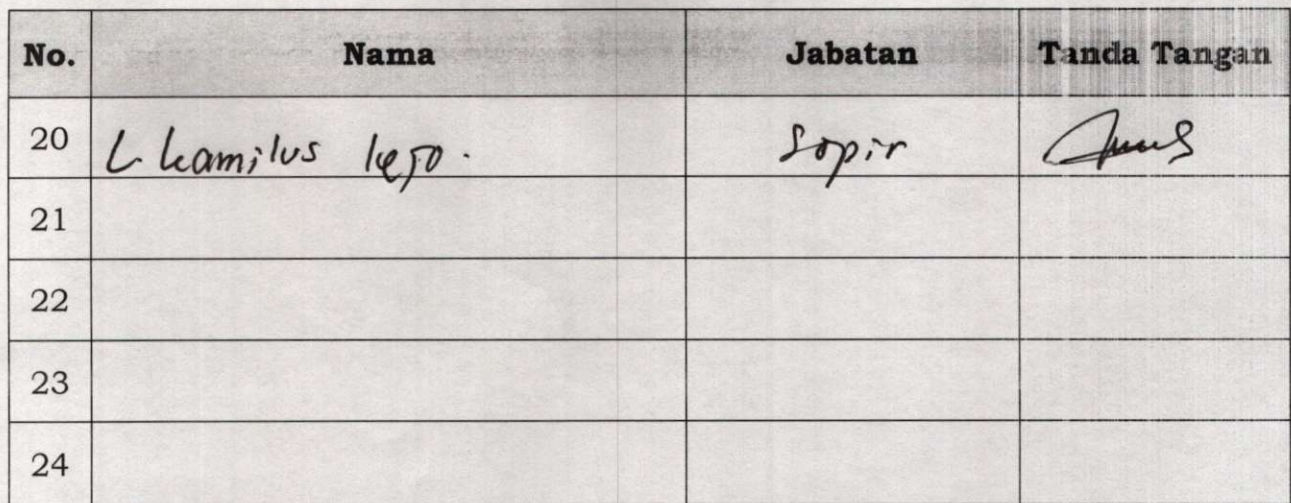 No. Nama Jabatan Tanda Tangan
20 L kamilus lejo. Sopir
21
22
23
24